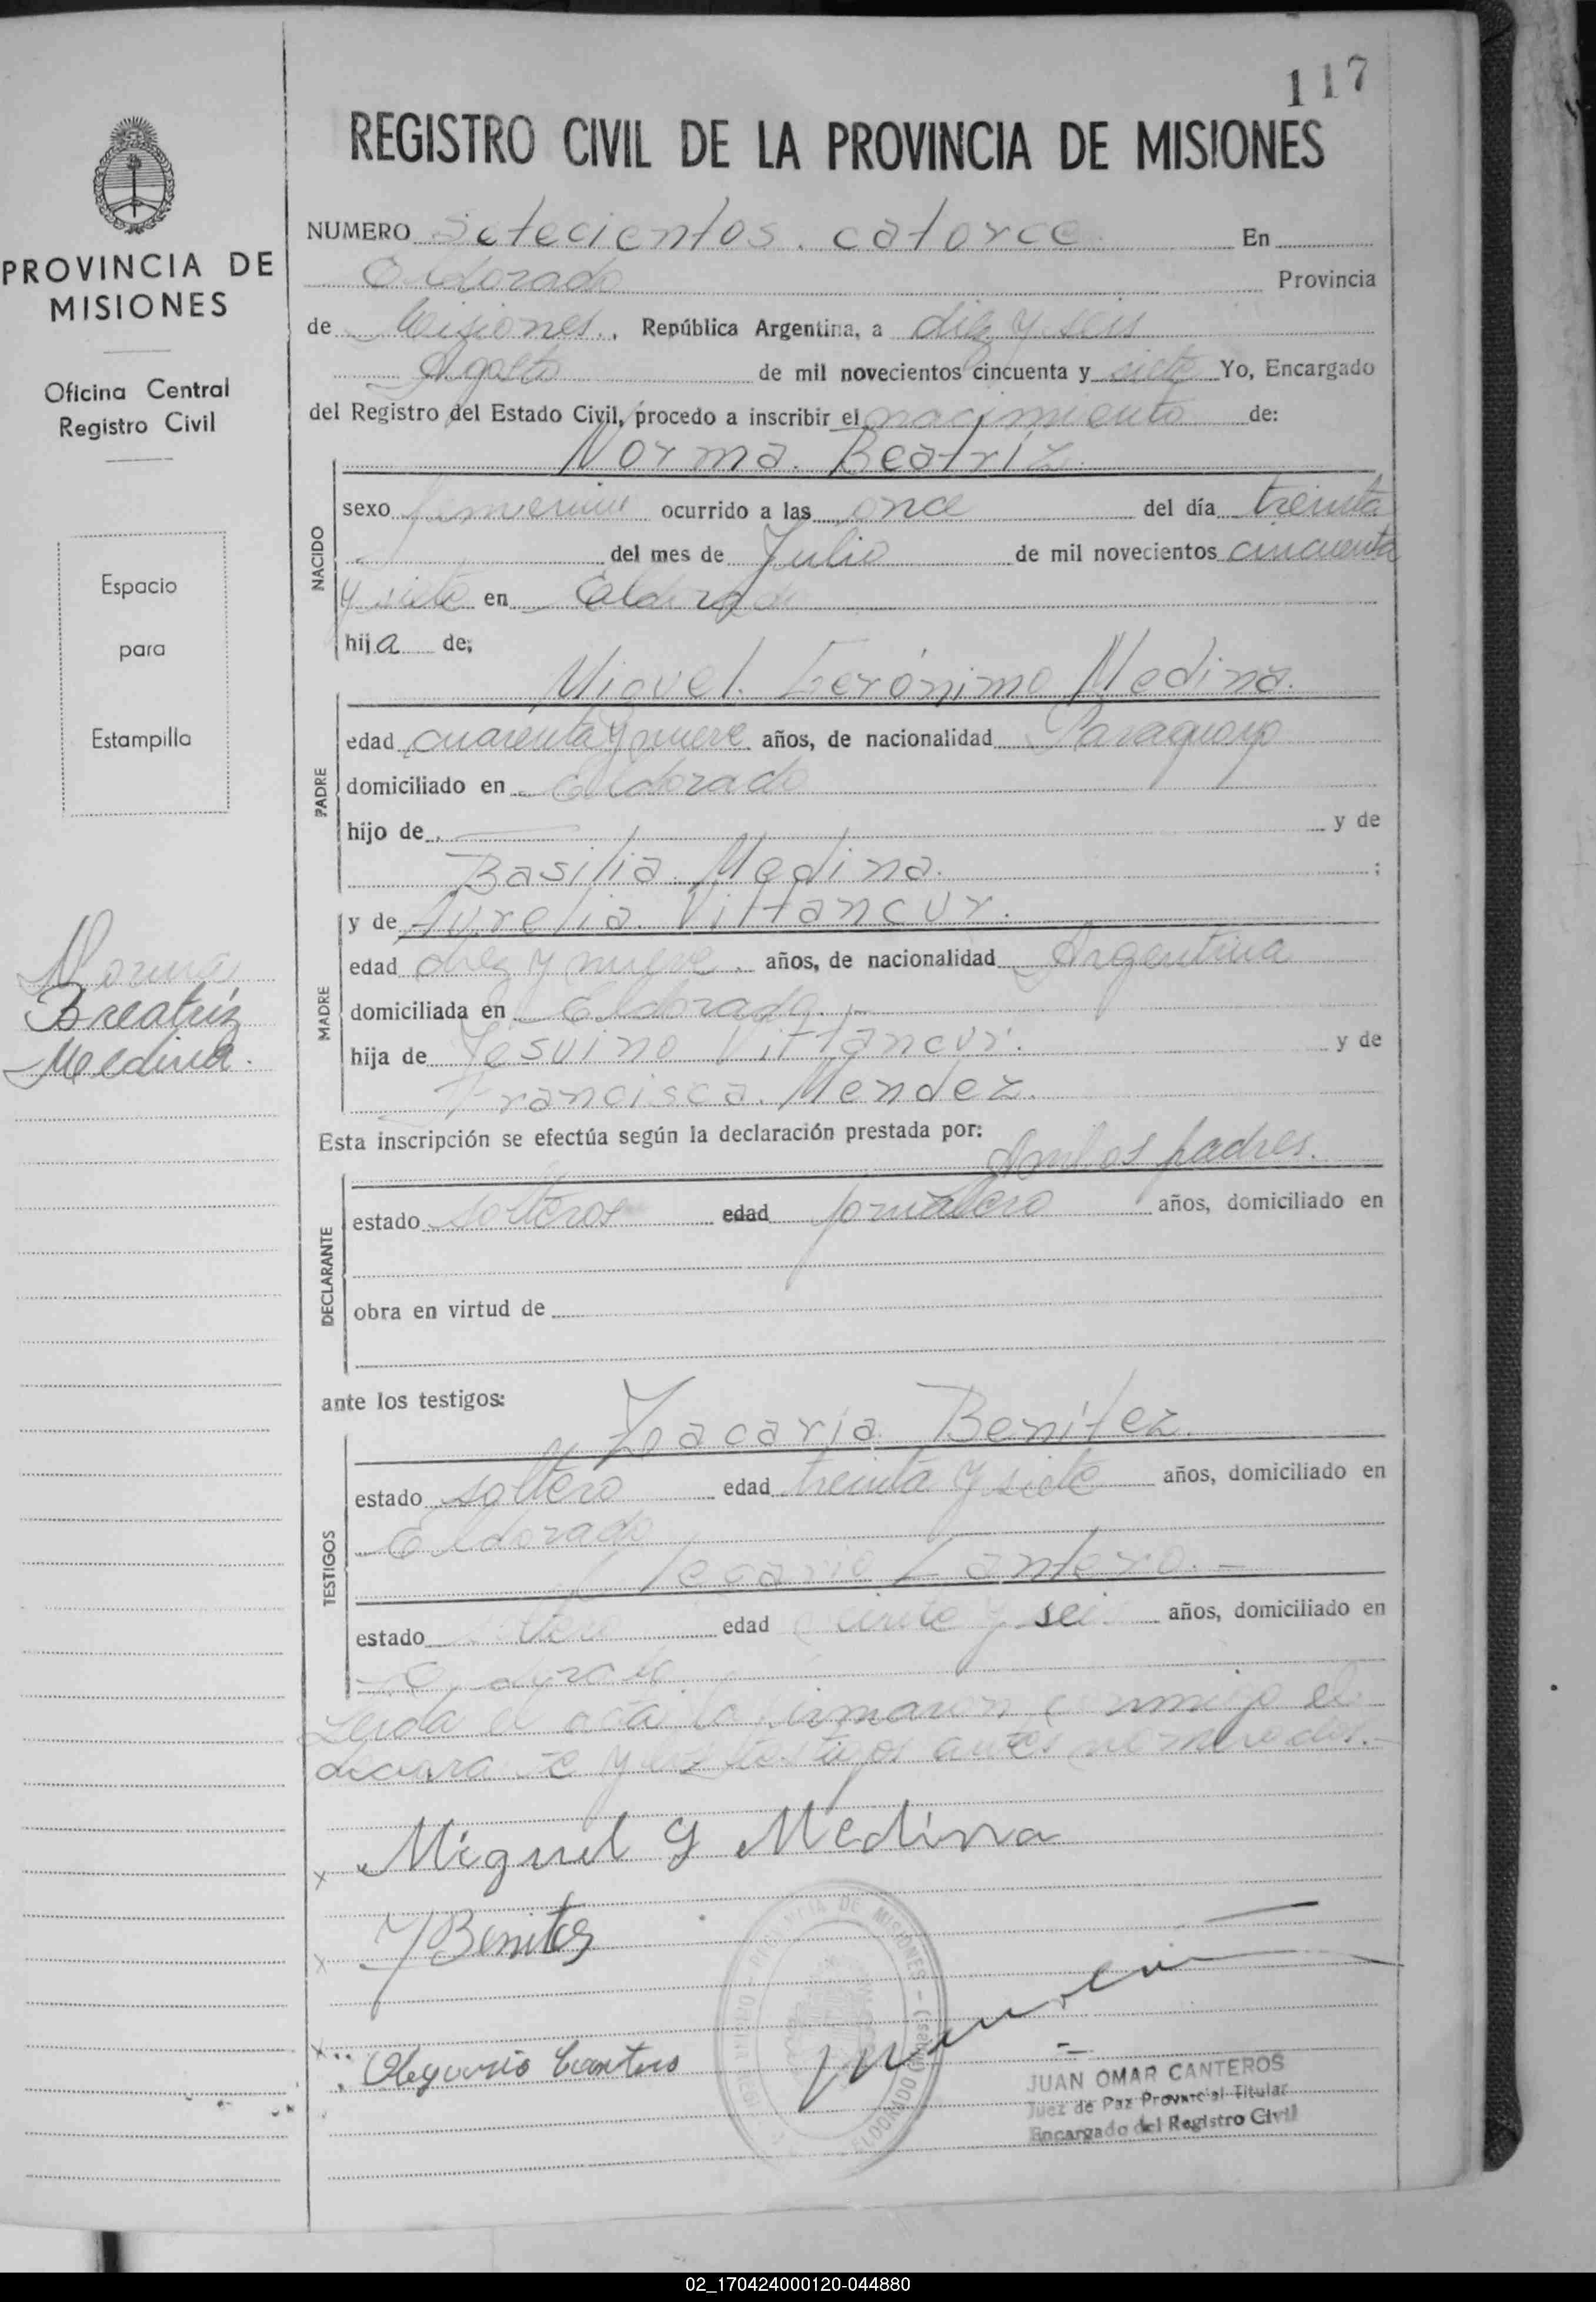 117
REGISTRO CIVIL DE LA PROVINCIA DE MISIONES
PROVINCIA DE
MISIONES
Oficina Central
Registro Civil
Espacio
para
Estampilla
Norma
Beatríz
Medina.
NUMERO Setecientos catorce En
Eldorado Provincia
de Misiones, República Argentina, a diez y seis
Agosto de mil novecientos cincuenta y siete Yo, Encargado
del Registro del Estado Civil, procedo a inscribir el nacimiento de:
Norma. Beatríz
NACIDO
sexo femenino ocurrido a las once del día treinta
del mes de Julio de mil novecientos cincuenta
y siete en Eldorado
hija de;
Miguel. Gerónimo Medina.
PADRE
edad cuarenta y nueve años, de nacionalidad Paraguayo
domiciliado en Eldorado
hijo de y de
Basilia Medina. ;
y de Aurelia Vittancur.
MADRE
edad diez y nueve años, de nacionalidad Argentina
domiciliada en Eldorado.
hija de Jesuino Vittancur. y de
Francisca. Mendez.
Esta inscripción se efectúa según la declaración prestada por:
Ambos padres.
DECLARANTE
estado solteros edad jornalero años, domiciliado en
obra en virtud de
ante los testigos:
Zacaria Benítez.
TESTIGOS
estado soltero edad treinta y siete años, domiciliado en
Eldorado
Cantero. -
estado edad y seis años, domiciliado en
Leida el acta la firmaron conmigo el
y los testigos antes nombrados.-
x Miguel G Medina
x Benites
x Olegario Cantero
PROVINCIA DE MISIONES - ELDORADO (Misiones)
JUAN OMAR CANTEROS
Juez de Paz Provincial Titular
Encargado del Registro Civil
02_170424000120-044880